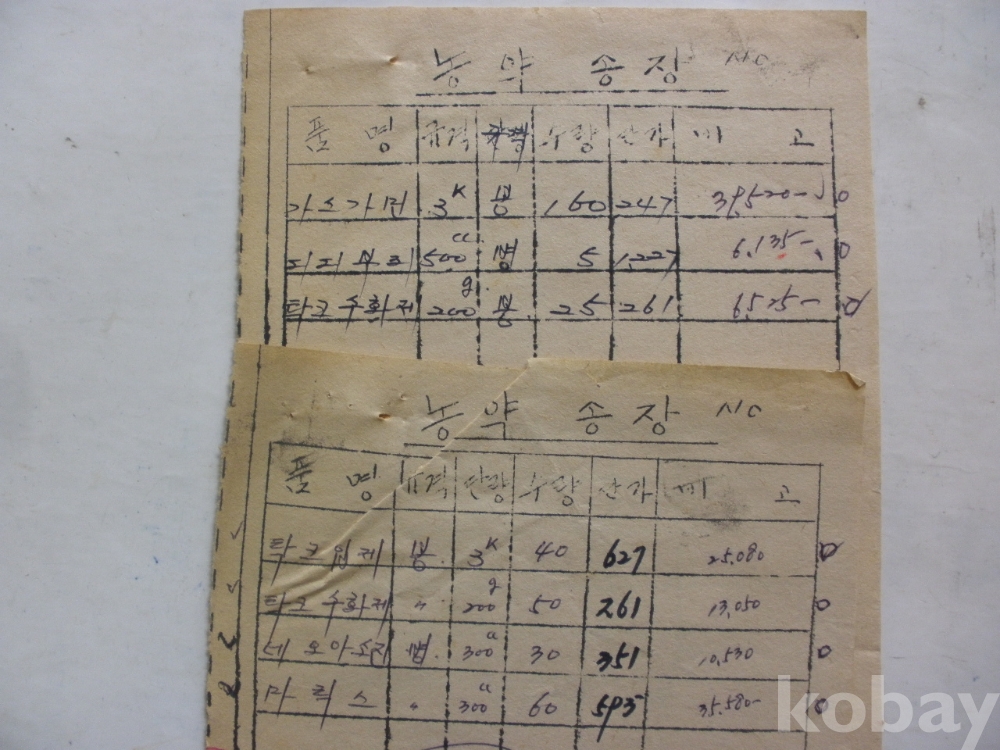 농약 송장 NO
품명 규격 수량 단가 비고
가스가민 3K 봉 160 247 39,520-
지지부리 500cc 병 5 1,227 6,135-
타크수화제 200g 봉 25 261 6,525-
농약 송장 NO
품명 규격 단량 수량 단가 비고
탁크입제 봉 3K 40 627 25,080
타크수화제 〃 200g 50 261 13,050
네오아소진 병 300cc 30 351 10,530
마릭스 〃 300cc 60 35,580-
kobay